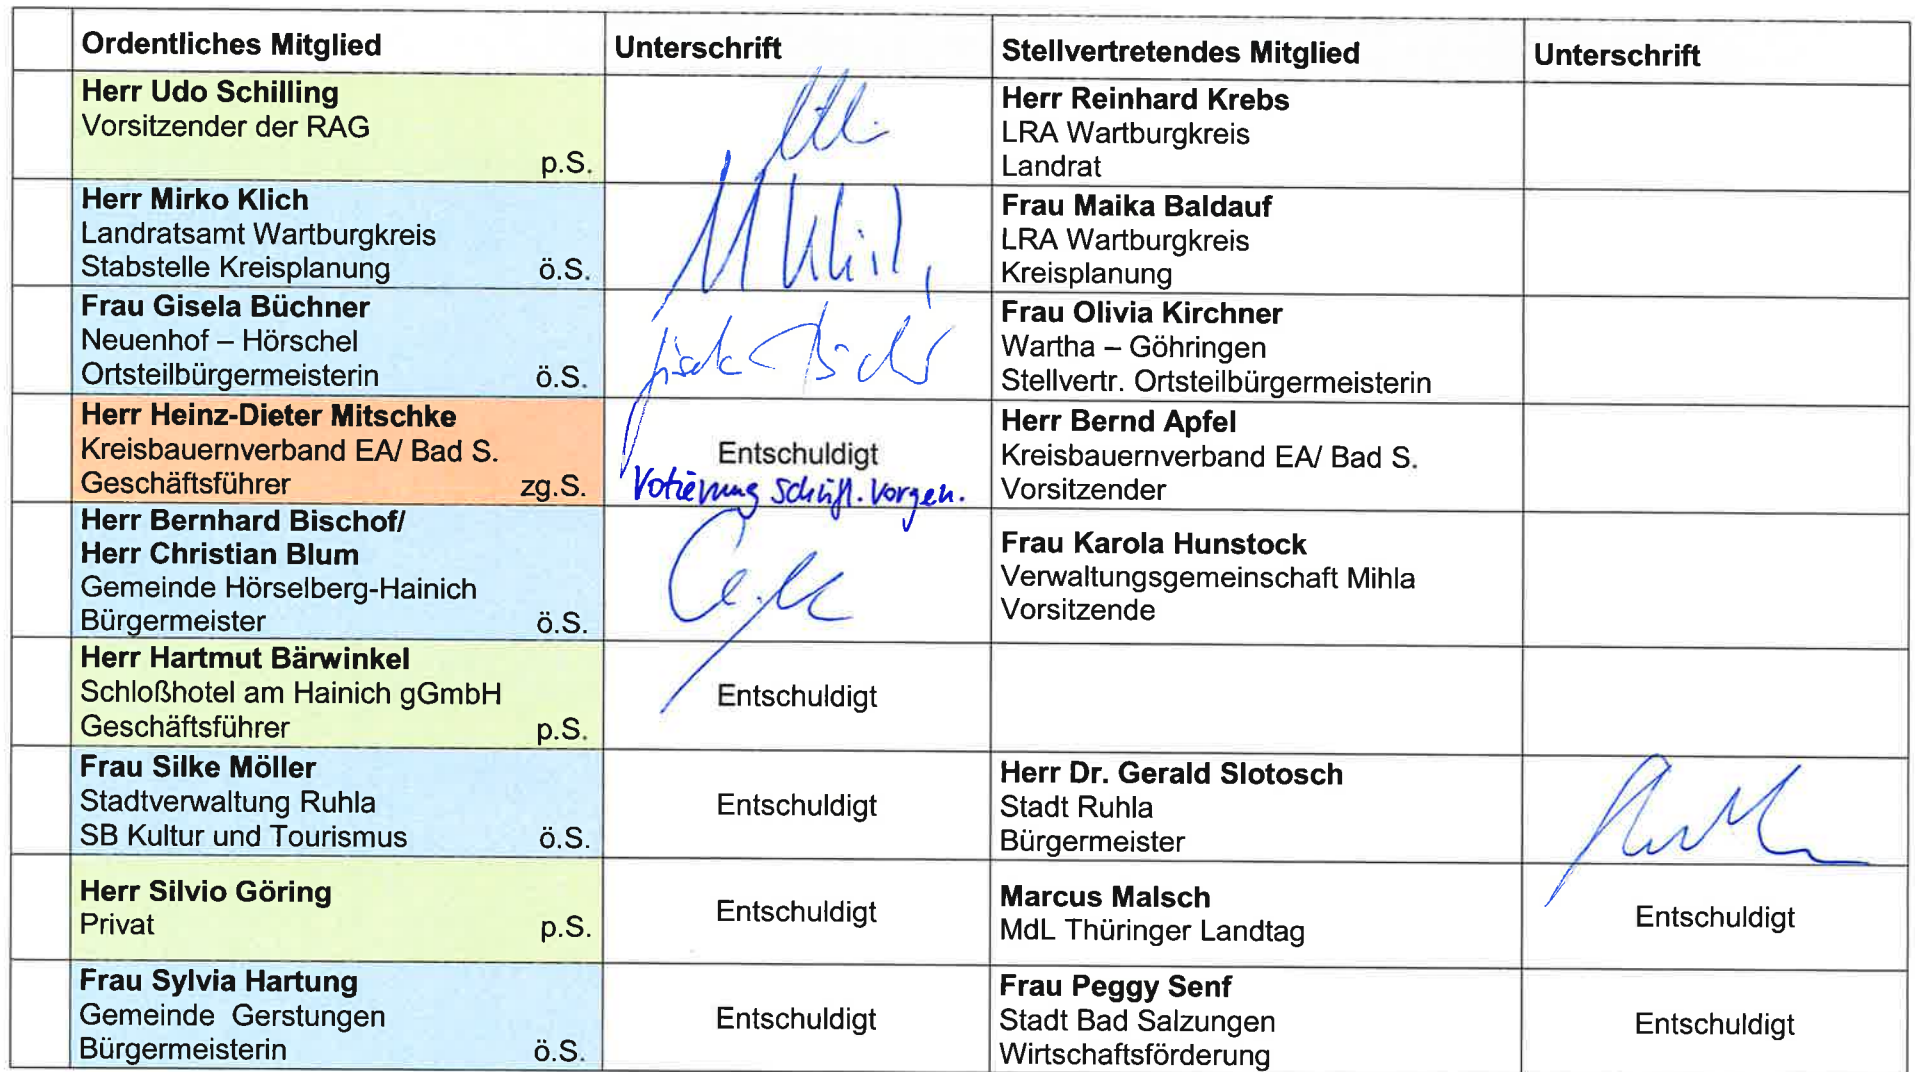 Ordentliches Mitglied
Unterschrift
Stellvertretendes Mitglied
Unterschrift
Herr Udo Schilling
Vorsitzender der RAG
p.S.
Herr Reinhard Krebs
LRA Wartburgkreis
Landrat
Herr Mirko Klich
Landratsamt Wartburgkreis
Stabstelle Kreisplanung ö.S.
Frau Maika Baldauf
LRA Wartburgkreis
Kreisplanung
Frau Gisela Büchner
Neuenhof – Hörschel
Ortsteilbürgermeisterin ö.S.
Frau Olivia Kirchner
Wartha – Göhringen
Stellvertr. Ortsteilbürgermeisterin
Herr Heinz-Dieter Mitschke
Kreisbauernverband EA/ Bad S.
Geschäftsführer zg.S.
Entschuldigt
Votierung schriftl. vorgen.
Herr Bernd Apfel
Kreisbauernverband EA/ Bad S.
Vorsitzender
Herr Bernhard Bischof/
Herr Christian Blum
Gemeinde Hörselberg-Hainich
Bürgermeister ö.S.
Frau Karola Hunstock
Verwaltungsgemeinschaft Mihla
Vorsitzende
Herr Hartmut Bärwinkel
Schloßhotel am Hainich gGmbH
Geschäftsführer p.S.
Entschuldigt
Frau Silke Möller
Stadtverwaltung Ruhla
SB Kultur und Tourismus ö.S.
Entschuldigt
Herr Dr. Gerald Slotosch
Stadt Ruhla
Bürgermeister
Herr Silvio Göring
Privat p.S.
Entschuldigt
Marcus Malsch
MdL Thüringer Landtag
Entschuldigt
Frau Sylvia Hartung
Gemeinde Gerstungen
Bürgermeisterin ö.S.
Entschuldigt
Frau Peggy Senf
Stadt Bad Salzungen
Wirtschaftsförderung
Entschuldigt